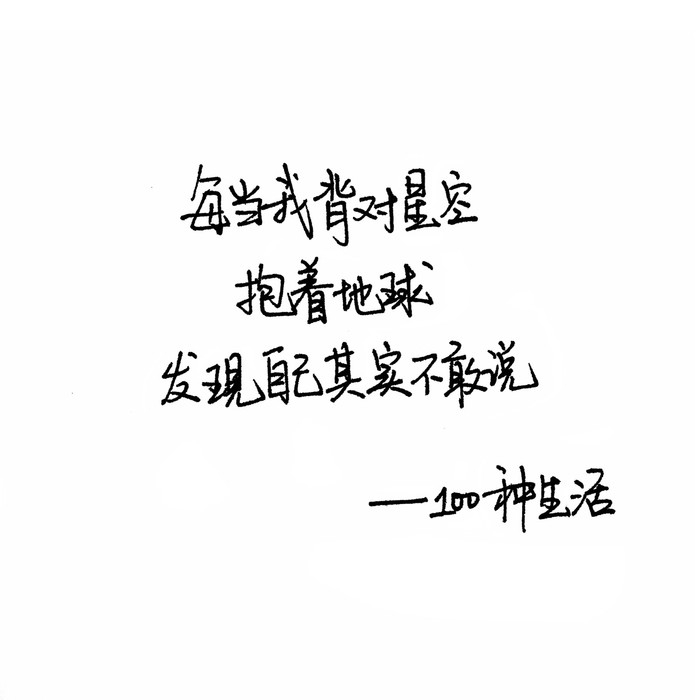 每当我背对星空
抱着地球
发现自己其实不敢说
——100种生活